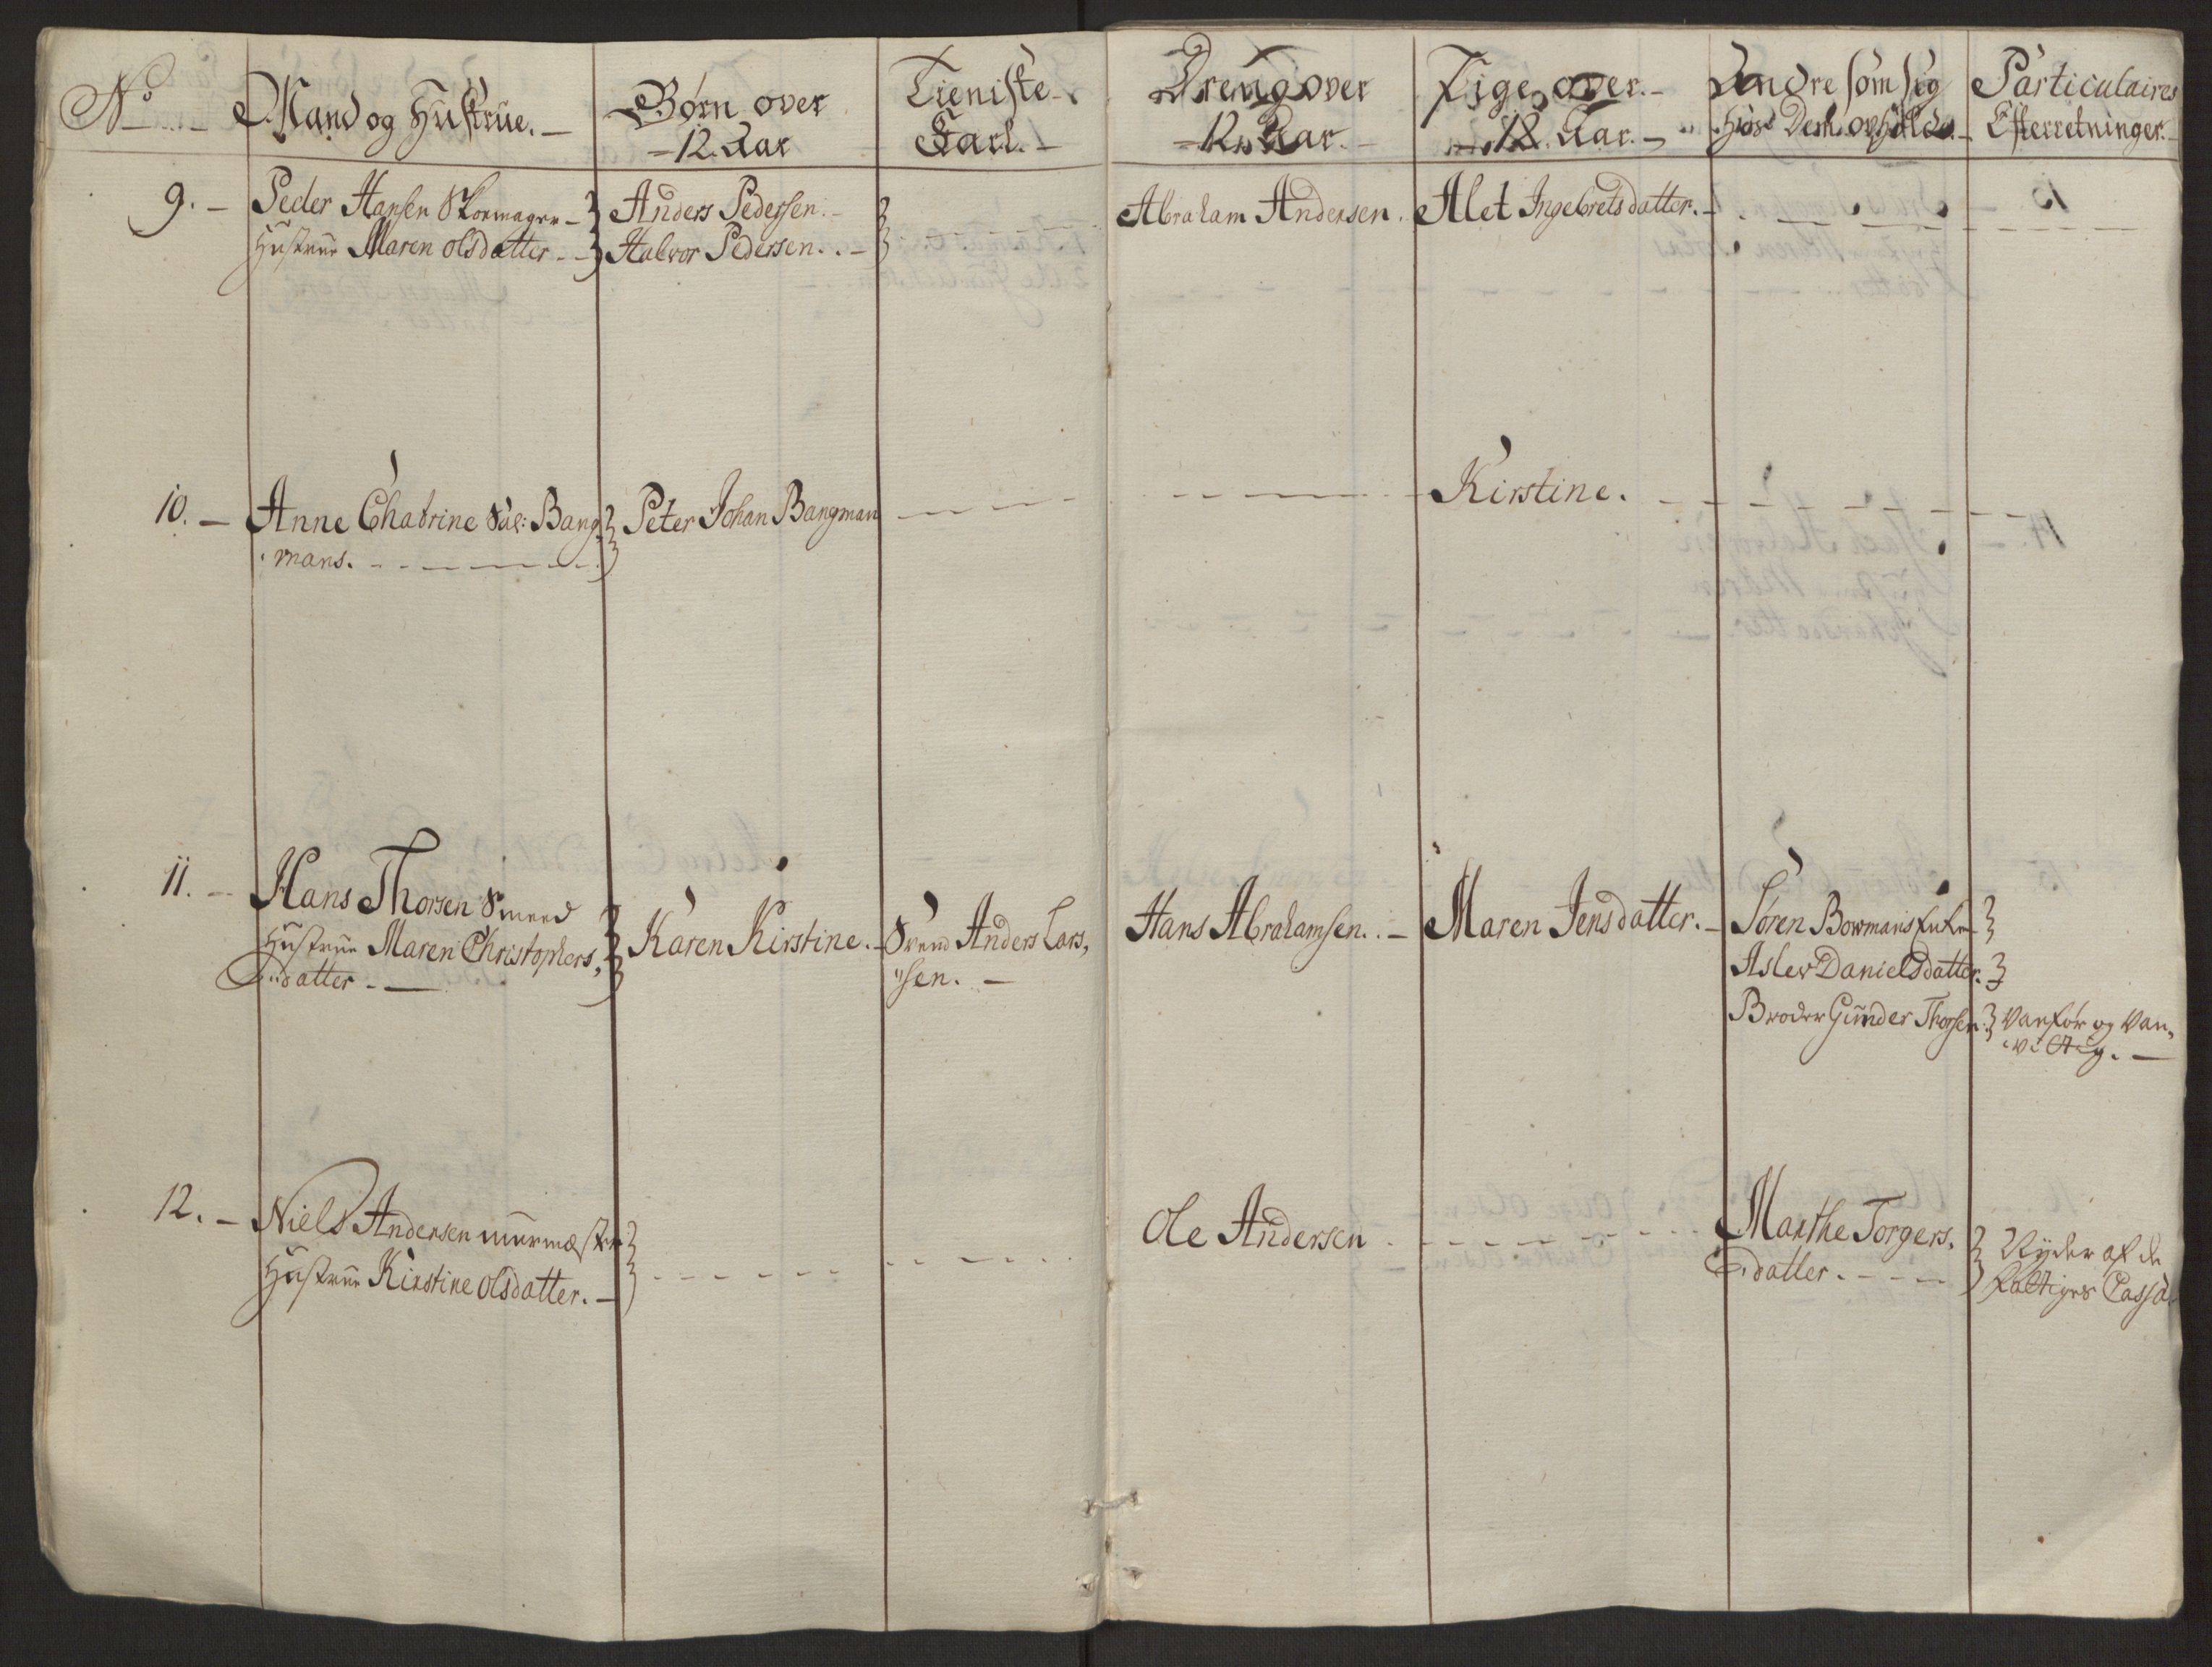 No
Mand og Hustrue.
Børn over
12. Aar
Tieniste
Karl.
Dreng over
12. Aar.
Pige over
12. Aar.
Andre som sig
Hoss Dem opholde.
Particulaires
Efterretninger.
9. Peder Hansen Skomager
Hustrue Maren Olsdatter
Anders Pedersen.
Halvor Pedersen.
Abraham Andersen.
Alet Ingebretsdatter.
10. Anne Chatrine Sal: Bang,
mans.
Peter Johan Bangman
Kirstine.
11. Hans Thorsen Smeed
Hustrue Maren Christophers,
datter
Karen Kirstine.
Svend Anders Lars,
sen.
Hans Abrahamsen.
Maren Jensdatter.
Søren Bowmans Enke
Aslew Danielsdatter.
Broder Gunder Thorsen.
Vanfør og Van,
vittig.
12. Niels Andersen Murmæster
Hustrue Kirstine Olsdatter.
Ole Andersen
Marthe Torgers,
datter.
Nyder af de
Fattiges Cassa